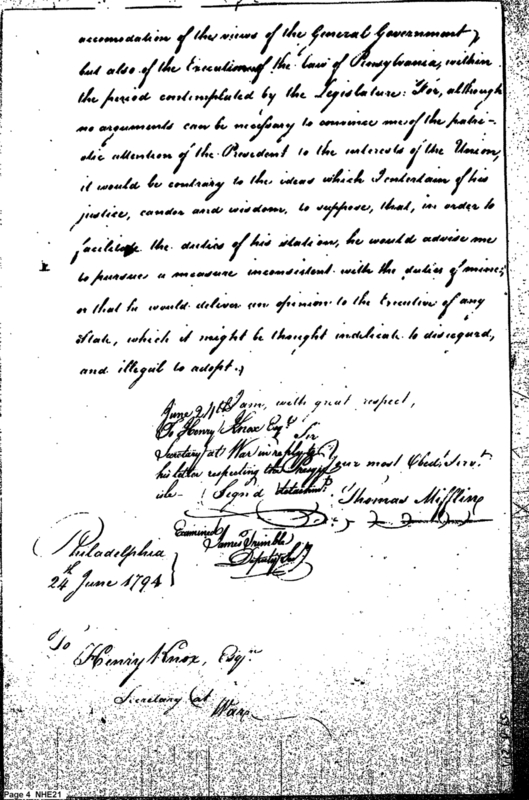 accomodation of the views of the General Government,
but also of the Execution of the law of Pennsylvania, within
the period contemplated by the Legislature: For, although
no arguments can be necessary to convince me of the patri-
otic attention of the President to the interests of the Union,
it would be contrary to the ideas which I entertain of his
justice, candor and wisdom, to suppose, that, in order to
facilitate the duties of his station, he would advise me
to pursue a measure inconsistent with the duties of mine;
or that he would deliver an opinion to the Executive of any
State, which it might be thought indelicate to disregard,
and illegal to adopt.
I am, with great respect,
June 24th
To Henry Knox Esqr
Sir
Secretary at War in reply to
his letter respecting the Presqu
isle
Your most Obedt Servt
Signd
Thomas Mifflin
Examined
James Trimble
Deputy Secy
Philadelphia
24th June 1794
To
Henry Knox, Esqr
Secretary at
War
Page 4 NHE21